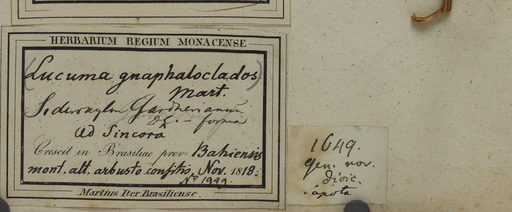 HERBARIUM REGIUM MONACENSE
(Lucuma gnaphaloclados)
Mart.
Sideroxylon Gardnerianum
DC. - forma
Ad Sincorá
Crescit in Brasiliae prov. Bahiensis
mont. alt. arbusto consitis, Nov. 1818;
No 1949.
Martius Iter Brasiliense.
1649.
Gen. nov.
dioic.
Sapota